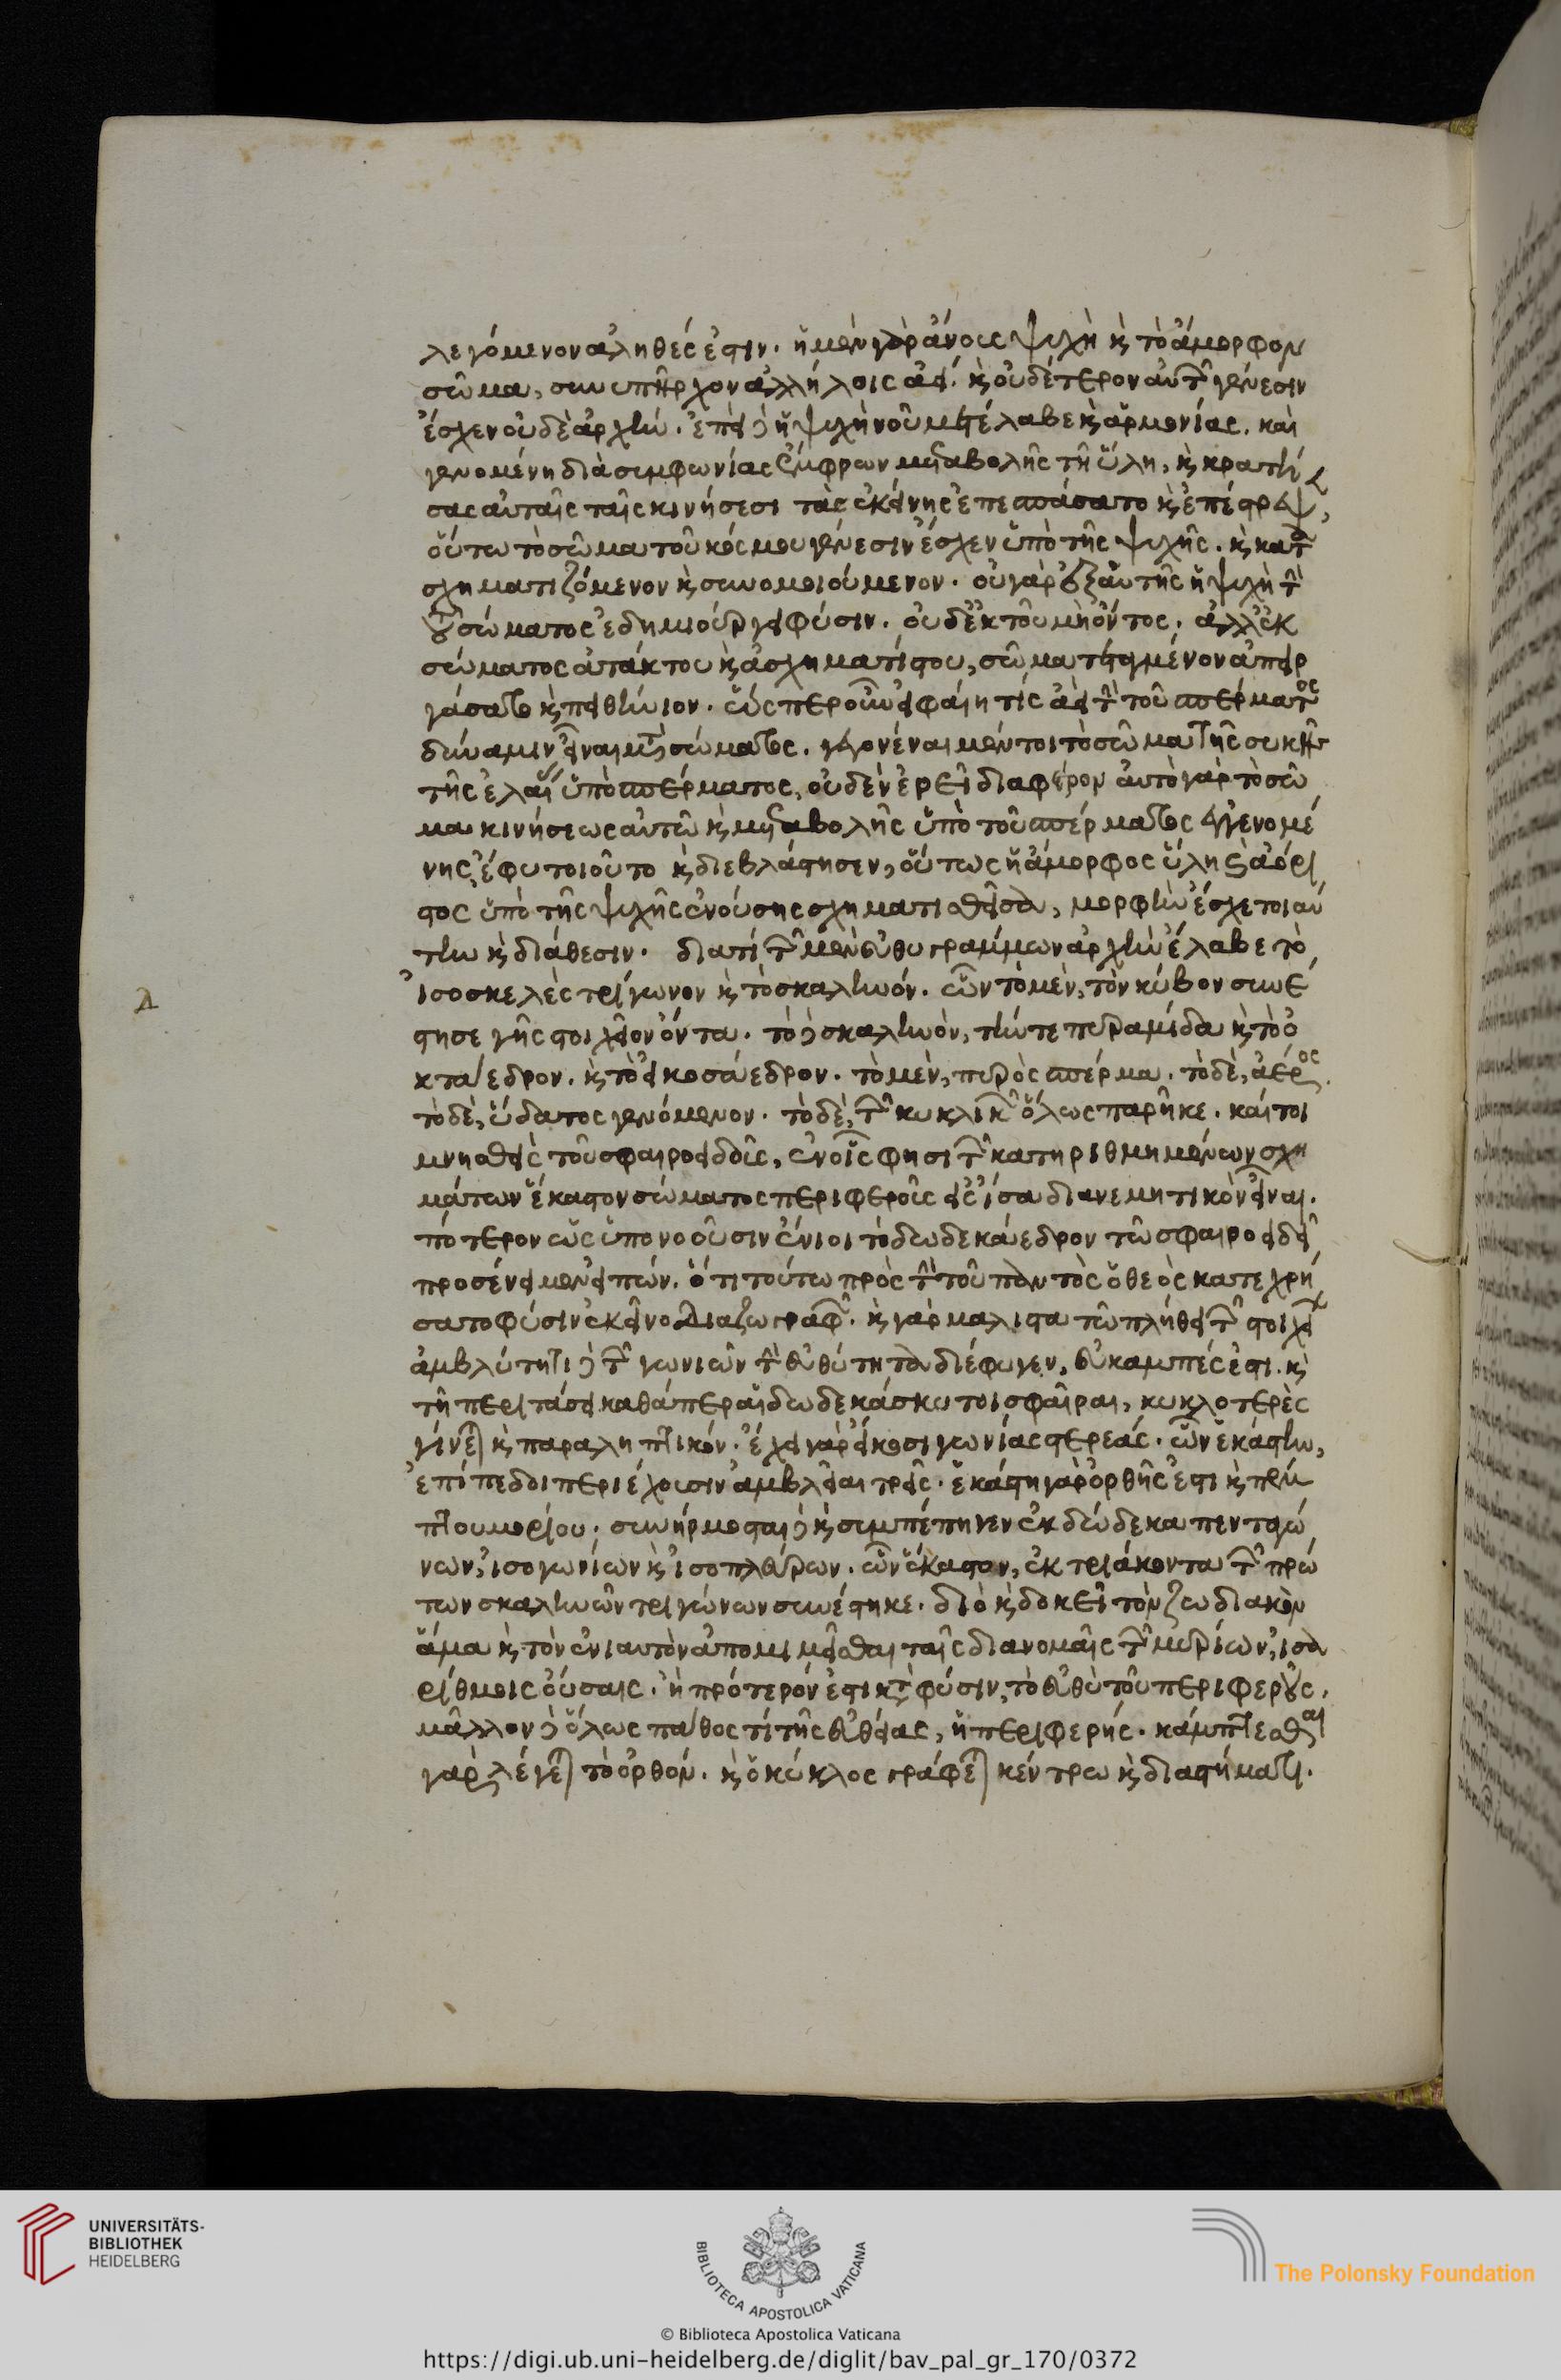 λεγόμενον ἀληθές ἐστιν. ἡ μὲν γὰρ ἄνους ψυχὴ καὶ τὸ ἄμορφον
σῶμα, συνυπῆρχον ἀλλήλοις ἀεί. καὶ οὐδέτερον αὐτῶν γένεσιν
ἔσχεν οὐδὲ ἀρχήν. ἐπεὶ δὲ ἡ ψυχὴ νοῦ μετέλαβε καὶ ἁρμονίας. καὶ
γενομένη διὰ συμφωνίας ἔμφρων μεταβολῆς τῇ ὕλῃ, καὶ κρατή
σας αὐταῖς ταῖς κινήσεσι τὰς ἐκείνης ἐπεσπάσατο καὶ ἐπέστρεψ,
οὕτω τὸ σῶμα τοῦ κόσμου γένεσιν ἔσχεν ὑπὸ τῆς ψυχῆς. καὶ κατα
σχηματιζόμενον καὶ συνομοιούμενον. οὐ γὰρ ἐξ αὑτῆς ἡ ψυχὴ τὴν
τοῦ σώματος ἐδημιούργει φύσιν. οὐδ' ἐκ τοῦ μὴ ὄντος. ἀλλ' ἐκ
σώματος ἀτάκτου καὶ ἀσχηματίστου, σῶμα τεταγμένον ἀπειρ
γάσατο καὶ πειθήνιον. ὥσπερ οὖν εἰ φαίη τίς ἀεὶ τὴν τοῦ σπέρματος
δύναμιν εἶναι μετὰ σώματος. γεγονέναι μέντοι τὸ σῶμα τῆς συκῆς
τῆς ἐλαίας ὑπὸ σπέρματος, οὐδὲν ἐρεῖ διαφέρον αὐτὸ γὰρ τὸ σῶ
μα κινήσεως αὐτῶ καὶ μεταβολῆς ὑπὸ τοῦ σπέρματος ἐγγενομέ
νης, ἔφυ τοιοῦτο καὶ διεβλάστησεν, οὕτως ἡ ἄμορφος ὕλη καὶ ἀόρι
στος ὑπὸ τῆς ψυχῆς ἐνούσης σχηματισθεῖσα, μορφὴν ἔσχε τοιαύ
την καὶ διάθεσιν. διατί τῶν μὲν εὐθυγράμμων ἀρχὴν ἔλαβε τὸ
ἰσοσκελὲς τρίγωνον καὶ τὸ σκαληνόν. ὧν τὸ μὲν, τὸν κύβον συνέ
στησε γῆς στοιχεῖον ὄντα. τὸ δὲ σκαληνὸν, τήν τε πυραμίδα καὶ τὸ ὀ
κτάεδρον. καὶ τὸ εἰκοσάεδρον. τὸ μὲν, πυρὸς σπέρμα. τὸ δὲ, ἀέρος.
τὸ δὲ, ὕδατος γενόμενον. τὸ δὲ, τῶν κυκλικῶν ὅλως παρῆκε. καίτοι
μνησθεὶς τοῦ σφαιροειδοῦς, ἐν οἷς φησι τῶν κατηριθμημένων σχη
μάτων ἕκαστον σώματος περιφεροῦς εἰς ἴσα διανεμητικὸν εἶναι.
πότερον ὡς ὑπονοοῦσιν ἔνιοι τὸ δωδεκάεδρον τῶ σφαιροειδεῖ
προσένειμεν εἰπών. ὅτι τούτω πρὸς τὴν τοῦ παντὸς ὁ θεὸς κατεχρή
σατο φύσιν ἐκεῖνο διαζωγραφῶν. καὶ γὰρ μάλιστα τῶ πλήθει τῶν στοιχείων
ἀμβλύτητι δὲ τῶν γωνιῶν τὴν εὐθύτητα διέφυγεν, εὐκαμπές ἐστι. καὶ
τῇ περιτάσει καθάπερ αἱ δωδεκάσκυτοι σφαῖραι, κυκλοτερὲς
γίνεται καὶ παραληπτικόν. ἔχει γὰρ εἴκοσι γωνίας στερεάς. ὧν ἑκάστην,
ἐπίπεδοι περιέχουσιν ἀμβλεῖαι τρεῖς. ἑκάστη γὰρ ὀρθῆς ἐστι καὶ πέμ
πτου μορίου. συνήρμοσται δὲ καὶ συμπέπηγεν ἐκ δώδεκα πενταγώ
νων, ἰσογωνίων καὶ ἰσοπλεύρων. ὧν ἕκαστον, ἐκ τριάκοντα τῶν πρώ
των σκαληνῶν τριγώνων συνέστηκε. διὸ καὶ δοκεῖ τὸν ζωδιακὸν
ἅμα καὶ τὸν ἐνιαυτὸν ἀπομιμεῖσθαι ταῖς διανομαῖς τῶν μοιρίων, ἰσα
ρίθμοις οὔσαις. ἢ πρότερόν ἐστι κατὰ φύσιν, τὸ εὐθὺ τοῦ περιφεροῦς.
μᾶλλον δὲ ὅλως πάθος τί τῆς εὐθείας, ἡ περιφερής. κάμπτεσθαι
γὰρ λέγεται τὸ ὀρθόν. καὶ ὁ κύκλος γράφεται κέντρω καὶ διαστήματι.
UNIVERSITÄTS-
BIBLIOTHEK
HEIDELBERG
BIBLIOTECA APOSTOLICA VATICANA
The Polonsky Foundation
© Biblioteca Apostolica Vaticana
https://digi.ub.uni-heidelberg.de/diglit/bav_pal_gr_170/0372